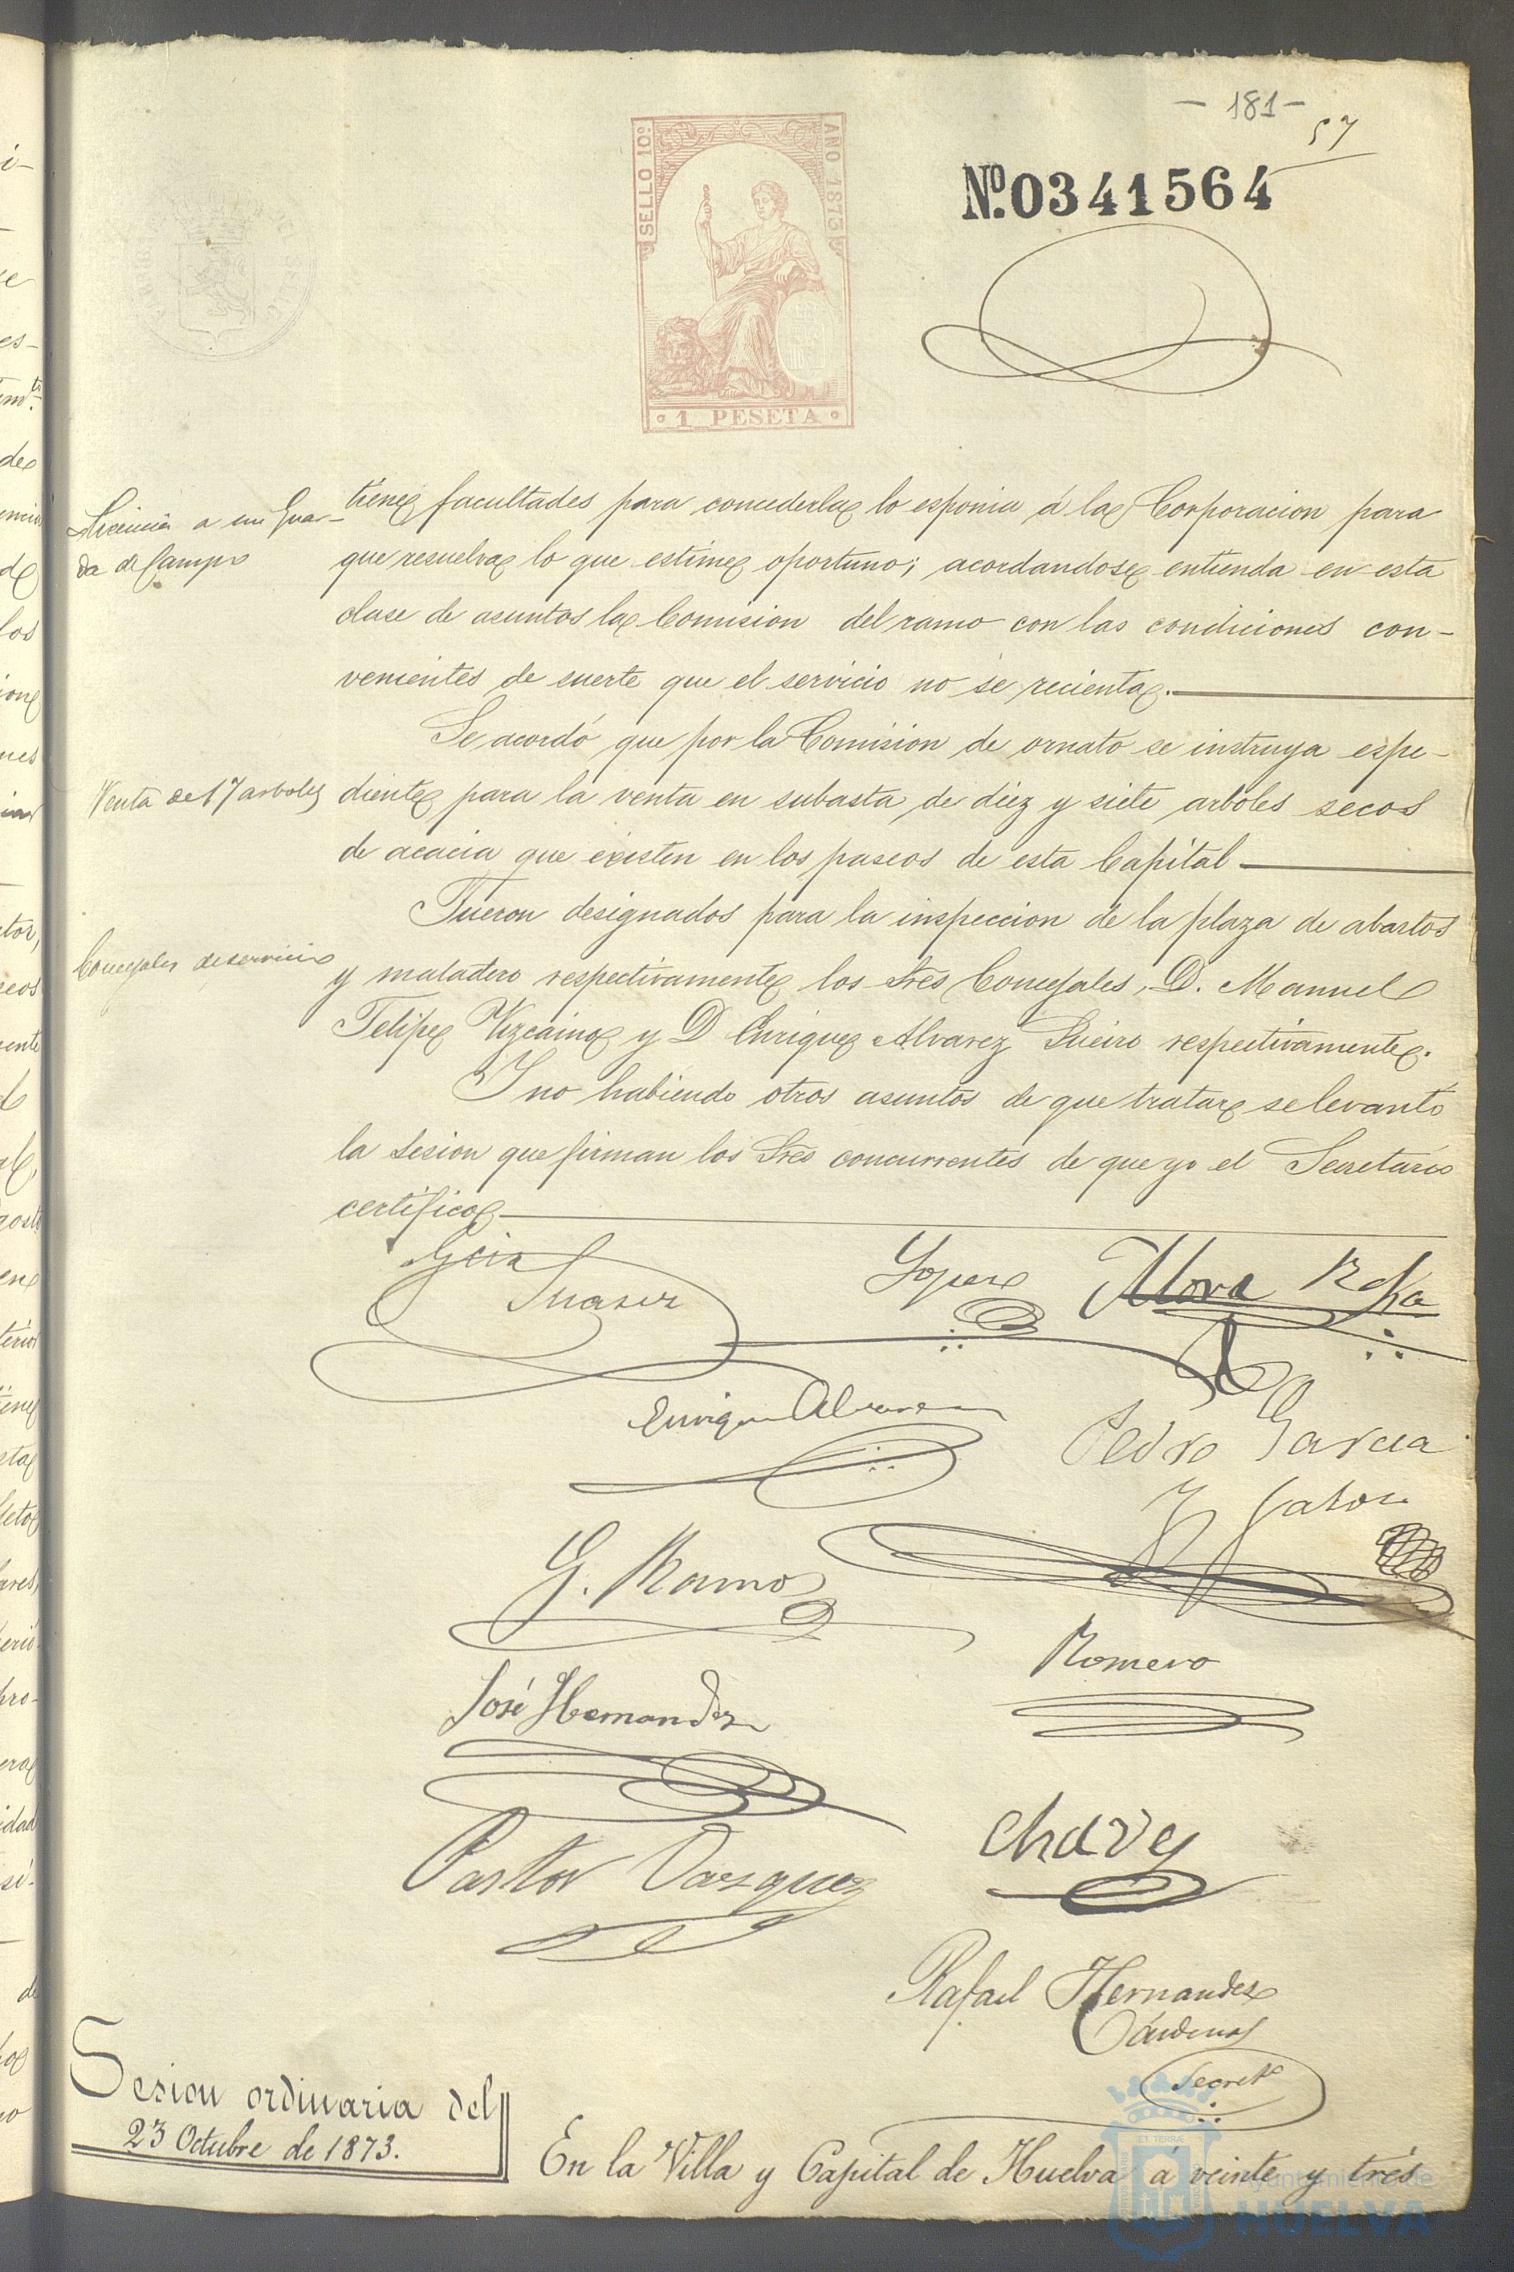 - 181 -
57
SELLO 10º
AÑO 1873
Nº 0341564
1 PESETA
Licencia a un Guar-
da de Campo
tiene facultades para concederla lo esponia á la Corporacion para
que resuelva lo que estime oportuno; acordandose entienda en esta
clase de asuntos la Comision del ramo con las condiciones con-
venientes de suerte que el servicio no se recienta.
Se acordó que por la Comision de ornato se instruya espe-
Venta de 17 arboles
diente para la venta en subasta de diez y siete arboles secos
de acacia que existen en los paseos de esta Capital
Fueron designados para la inspeccion de la plaza de abastos
Concejales de servicio
y matadero respectivamente los Sres Concejales, D. Manuel
Felipe Vizcaino y D Enrique Alvarez Sueiro respectivamente.
Y no habiendo otros asuntos de que tratar se levantó
la sesion que firman los Sres concurrentes de que yo el Secretario
certifico
Gcia
Suarez
Lopez
Mora
Enrique Alvarez
Pedro Garcia
G. Ramos
Romero
José Hernandez
Chaves
Pastor Vazquez
Rafael Hernandez
Cárdenas
Secretº
Sesion ordinaria del
23 Octubre de 1873.
En la Villa y Capital de Huelva á veinte y trés
Ayuntamiento de
HUELVA